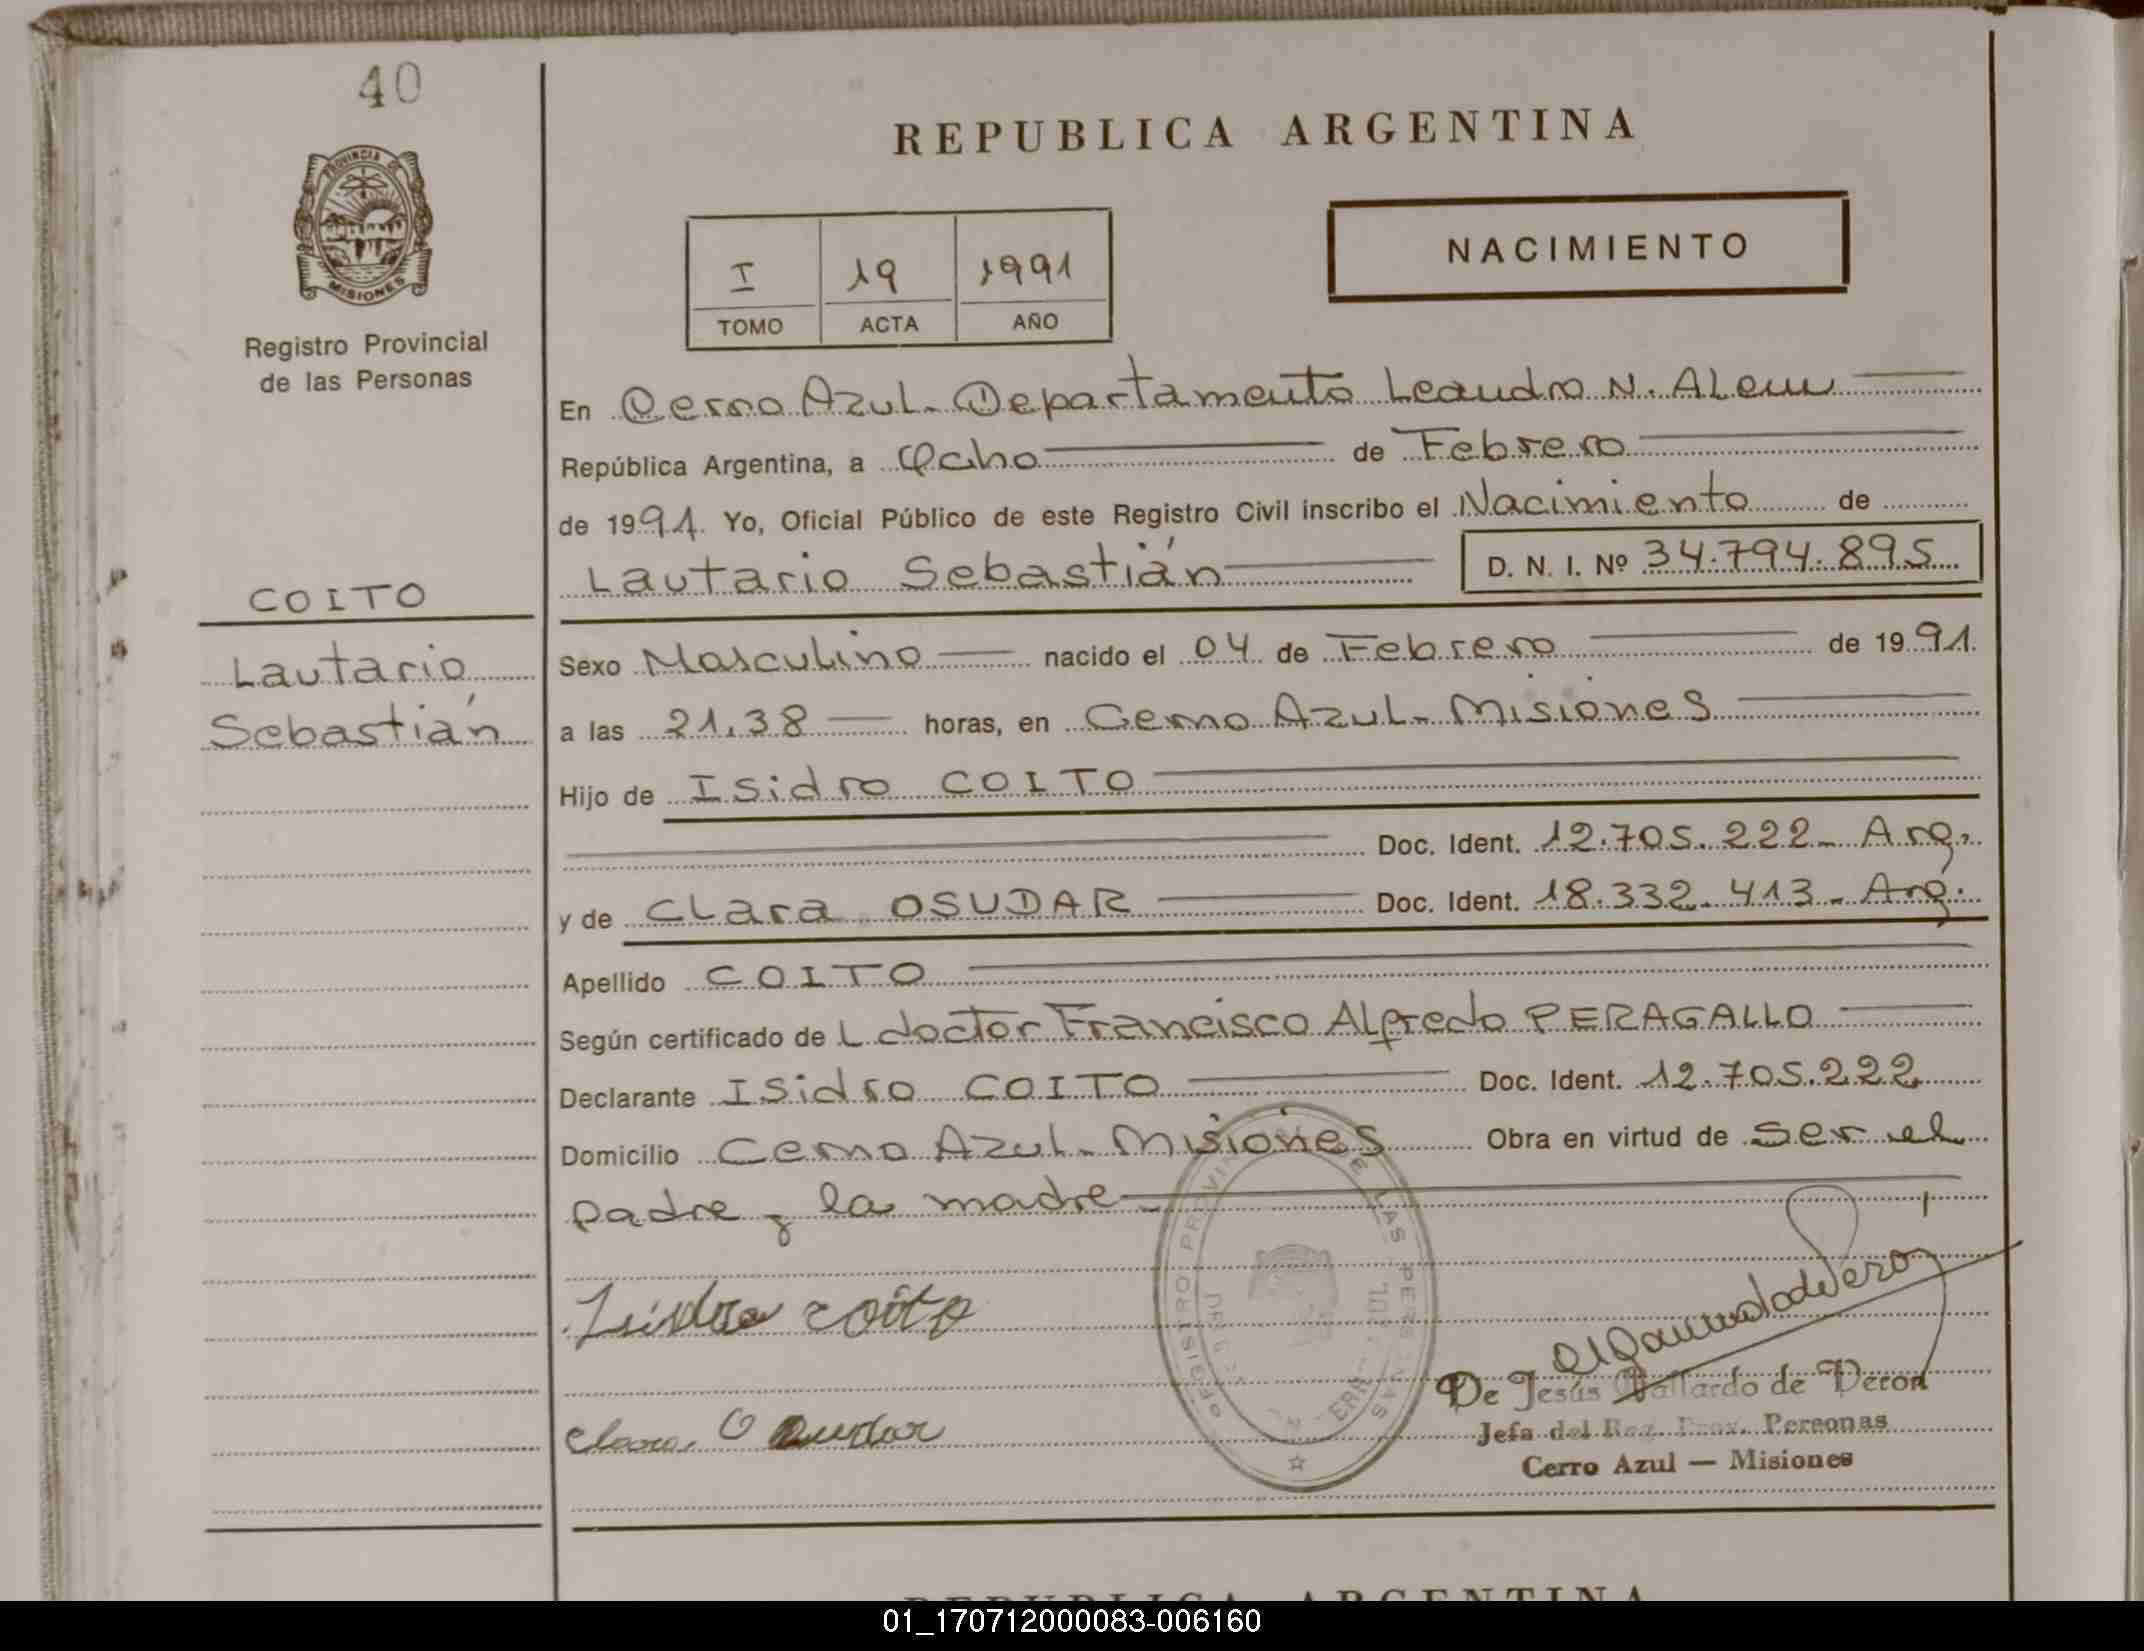 40
PROVINCIA DE
MISIONES
Registro Provincial
de las Personas
COITO
Lautario
Sebastián
REPUBLICA ARGENTINA
I 19 1991
TOMO ACTA AÑO
NACIMIENTO
En Cerro Azul - Departamento Leandro N. Alem
República Argentina, a Ocho de Febrero
de 1991. Yo, Oficial Público de este Registro Civil inscribo el Nacimiento de
Lautario Sebastián D. N. I. Nº 34.794.895
Sexo Masculino nacido el 04 de Febrero de 1991.
a las 21,38 horas, en Cerro Azul - Misiones
Hijo de Isidro COITO
Doc. Ident. 12.705.222 - Arg.
y de Clara OSUDAR Doc. Ident. 18.332.413 - Arg.
Apellido COITO
Según certificado del doctor Francisco Alfredo PERAGALLO
Declarante Isidro COITO Doc. Ident. 12.705.222
Domicilio Cerro Azul - Misiones Obra en virtud de ser el
padre y la madre
Isidro coito
Clara Osudar
De Jesús Gallardo de Verón
Jefa del Reg. Prov. Personas
Cerro Azul — Misiones
REPUBLICA ARGENTINA
01_170712000083-006160